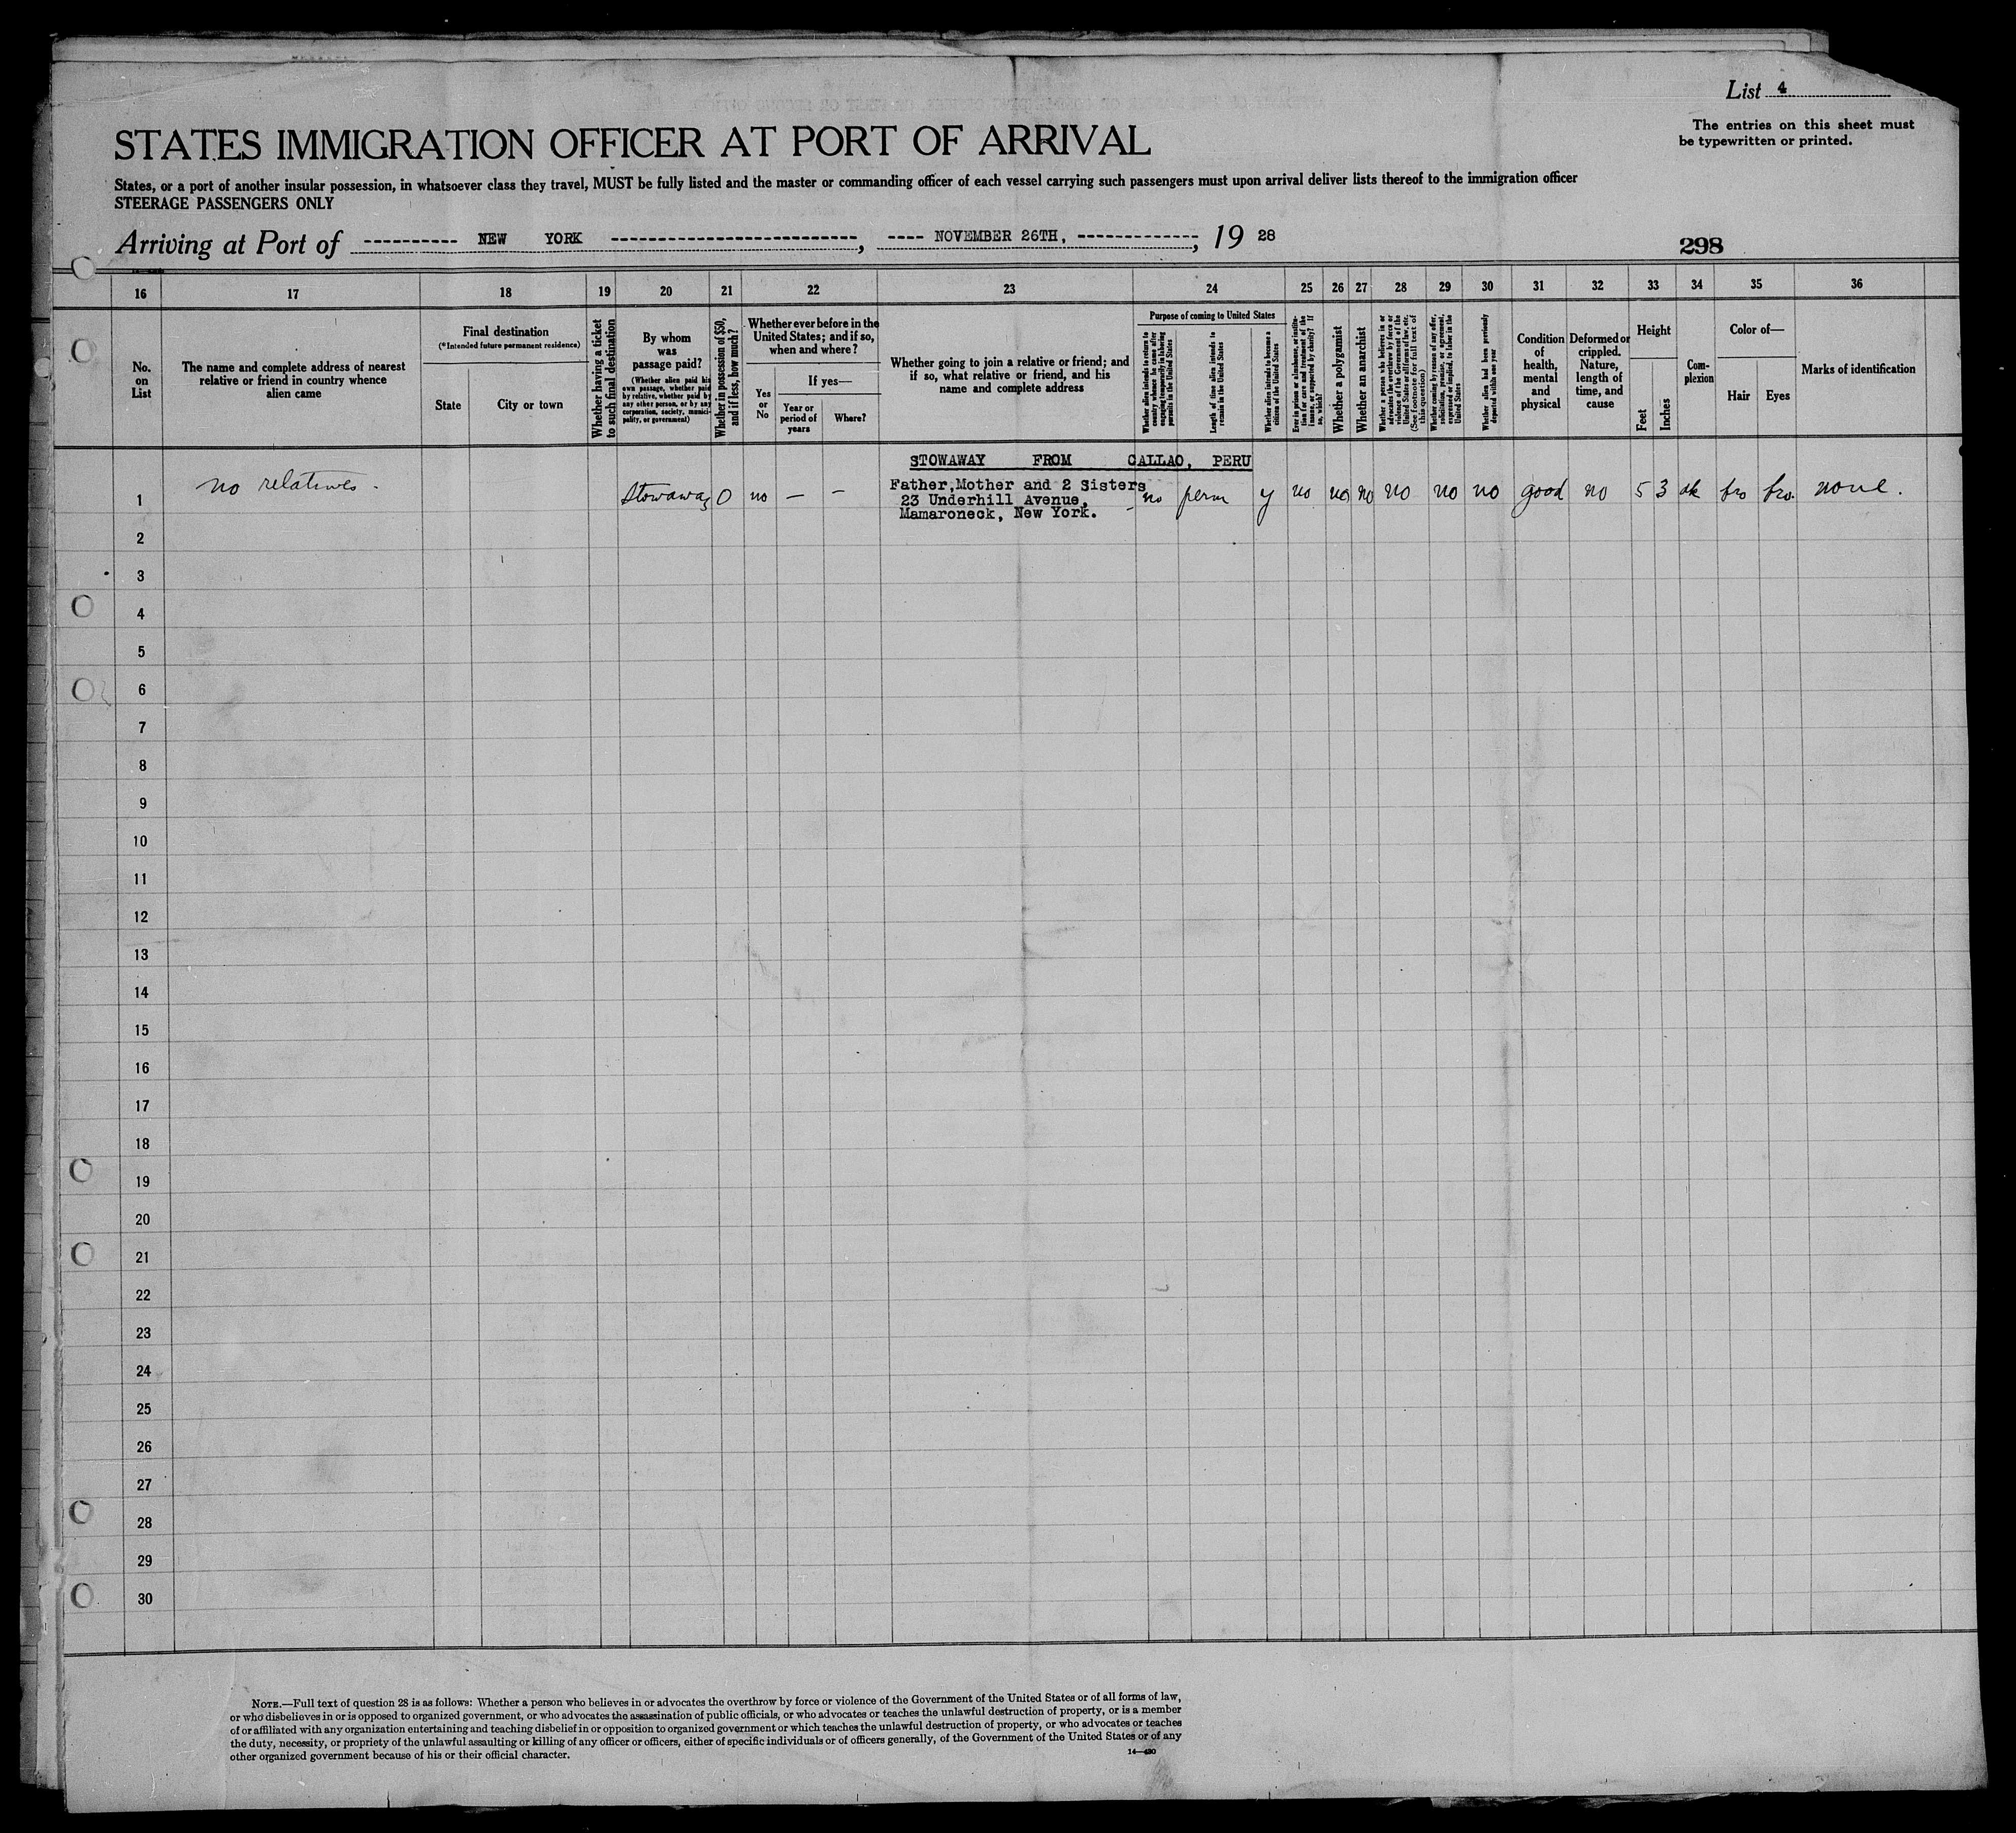 List 4
The entries on this sheet must
be typewritten or printed.
STATES IMMIGRATION OFFICER AT PORT OF ARRIVAL
States, or a port of another insular possession, in whatsoever class they travel, MUST be fully listed and the master or commanding officer of each vessel carrying such passengers must upon arrival deliver lists thereof to the immigration officer
STEERAGE PASSENGERS ONLY
Arriving at Port of NEW YORK, NOVEMBER 26TH, 1928
298
16 17 18 19 20 21 22 23 24 25 26 27 28 29 30 31 32 33 34 35 36
No.
on
List
The name and complete address of nearest
relative or friend in country whence
alien came
Final destination
(*Intended future permanent residence)
State
City or town
Whether having a ticket
to such final destination
By whom
was
passage paid?
(Whether alien paid his
own passage, whether paid
by relative, whether paid by
any other person, or by any
corporation, society, munici-
pality, or government)
Whether in possession of $50,
and if less, how much?
Whether ever before in the
United States; and if so,
when and where?
Yes
or
No
If yes—
Year or
period of
years
Where?
Whether going to join a relative or friend; and
if so, what relative or friend, and his
name and complete address
Purpose of coming to United States
Whether alien intends to return to
country whence he came after
engaging temporarily in laboring
pursuits in the United States
Length of time alien intends to
remain in the United States
Whether alien intends to become a
citizen of the United States
Ever in prison or almshouse, or institu-
tion for care and treatment of the
insane, or supported by charity? If
so, which?
Whether a polygamist
Whether an anarchist
Whether a person who believes in or
advocates the overthrow by force or
violence of the Government of the
United States or all forms of law, etc.
(See footnote for full text of
this question)
Whether coming by reason of any offer,
solicitation, promise, or agreement,
expressed or implied, to labor in the
United States
Whether alien had been previously
deported within one year
Condition
of
health,
mental
and
physical
Deformed or
crippled.
Nature,
length of
time, and
cause
Height
Feet
Inches
Com-
plexion
Color of—
Hair
Eyes
Marks of identification
STOWAWAY FROM CALLAO, PERU
1 no relatives. stowaway 0 no — — Father, Mother and 2 Sisters no perm y no no no no no no good no 5 3 dk bro bro. none.
23 Underhill Avenue,
Mamaroneck, New York. -
2
3
4
5
6
7
8
9
10
11
12
13
14
15
16
17
18
19
20
21
22
23
24
25
26
27
28
29
30
NOTE.—Full text of question 28 is as follows: Whether a person who believes in or advocates the overthrow by force or violence of the Government of the United States or of all forms of law,
or who disbelieves in or is opposed to organized government, or who advocates the assassination of public officials, or who advocates or teaches the unlawful destruction of property, or is a member
of or affiliated with any organization entertaining and teaching disbelief in or opposition to organized government or which teaches the unlawful destruction of property, or who advocates or teaches
the duty, necessity, or propriety of the unlawful assaulting or killing of any officer or officers, either of specific individuals or of officers generally, of the Government of the United States or of any
other organized government because of his or their official character.
14—430